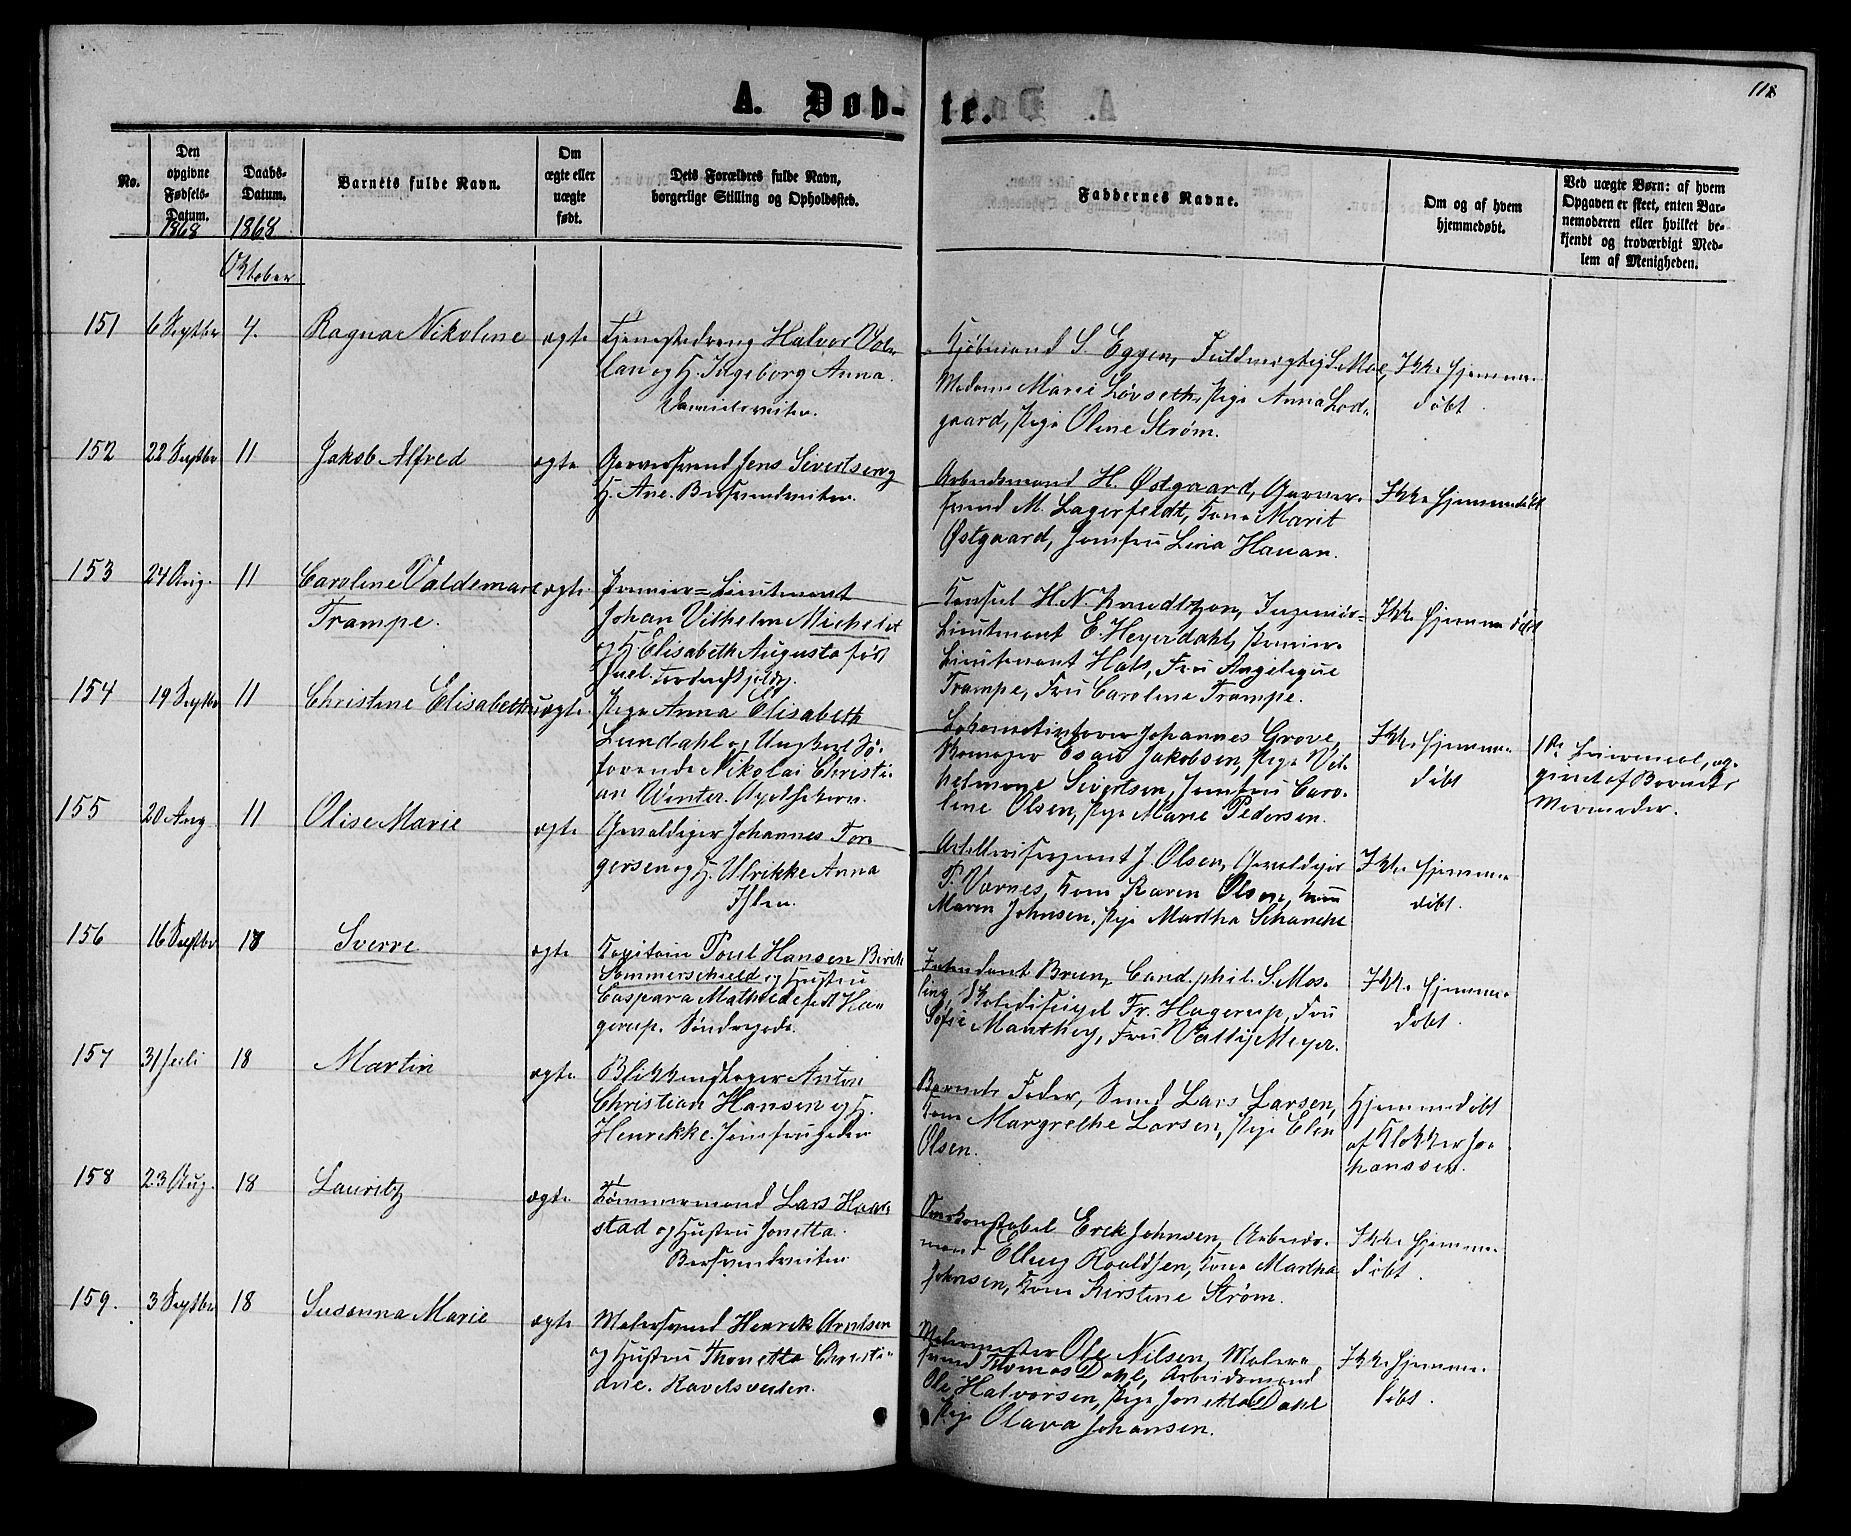 118
A. Døb-
te.
No.
Den
opgivne
Fødsels-
Datum.
1868
Daabs-
Datum.
1868
Barnets fulde Navn.
Om
ægte eller
uægte
født.
Dets Forældres fulde Navn,
borgerlige Stilling og Opholdssted.
Faddernes Navne.
Om og af hvem
hjemmedøbt.
Ved uægte Børn: af hvem
Opgaven er skeet, enten Bar-
nemoderen eller hvilket be-
kjendt og troværdigt Med-
lem af Menigheden.
Oktober
151
6 Septbr
4.
Ragna Nikoline
ægte
Tjenestedreng Halvor
og H. Ingeborg Anna.
Kjøbmand S. Eggen, Fuldmægtig S. Moe,
Madame Marie Løvseth, Pige Anna Lod-
gaard, Pige Oline Strøm.
Ikke hjemme-
døbt.
152
22 Septbr
11
Jakob Alfred
ægte
Garversvend Jens Sivertsen og
H. Ane. Bersvendveiten.
Arbeidsmand H. Østgaard, Garver-
svend M. Lagerfeldt, Kone Marit
Østgaard, Jomfru Lina Hauan.
Ikke hjemmedøbt
153
24 Aug.
11
Caroline Valdemare
Trampe.
ægte
Premier-Lieutenant
Johan Vilhelm Michelet
og H. Elisabeth Augusta født
Juel.
Konsul H. N. Knudtzon, Ingeniør-
Lieutenant E. Heyerdahl, Premier-
Lieutenant Hals, Fru Angelique
Trampe, Fru Caroline Trampe.
Ikke hjemmedøbt
154
19 Septbr
11
Christine Elisabeth
uægte
Pige Anna Elisabeth
Lundahl og Ungkarl Sø-
farende Nikolai Christi-
an Winter.
Lokomotivfører Johannes Grove,
Esau Jakobsen, Pige Vil-
helmine Sivertsen, Jomfru Caro-
line Olsen, Pige Marie Pedersen.
Ikke hjemme-
døbt
1ste Leiermaal, op-
givet af Barnets
Mormoder.
155
20 Aug
11
Olise Marie
ægte
Gevaldiger Johannes Tor-
gersen og H. Ulrikke Anna
Ihlen.
Artillerisergeant J. Olsen, Gevaldiger
P. Værnes, Kone Karen Olsen, Kone
Maren Johnsen, Pige Martha Schanche
Ikke hjemme-
døbt.
156
16 Septbr
18
Sverre
ægte
Kapitain Poul Hansen Birch
Sommerschield og Hustru
Caspara Mathilde født Ha-
gerup. Søndregade.
Intendant Bruun, Cand. phil. S. Mos-
ling, Fr. Hagerup, Fru
Sofie Manthey, Fru Vally Meyer.
Ikke hjemme-
døbt.
157
31 Juli
18
Martin
ægte
Blikkenslager Anton
Christian Hansen og H.
Henrikke. Jomfrugaden
Barnets Fader, Smed Lars Larsen,
Kone Margrethe Larsen, Pige Elen
Olsen.
Hjemmedøbt
af Klokker Jo-
hanssen.
158
23 Aug.
18
Lauritz
ægte
Tømmermand Lars Haar-
stad og Hustru Jonetta.
Bersvendveiten
Erik Johnsen, Arbeids-
mand Ellevg Roaldsen, Kone Martha
Johnsen, Kone Kirstine Strøm.
Ikke hjemme-
døbt.
159.
3 Septbr
18
Susanna Marie
ægte
Malersvend Henrik Arntsen
og Hustru Thonetta Christi-
ane. Ravelsveiten.
Malermester Ole Nilsen, Maler-
svend Thomas Dahl, Arbeidsmand
Ole Halvorsen, Pige Jonetta Dahl
Pige Olava Johansen.
Ikke hjemme-
døbt.